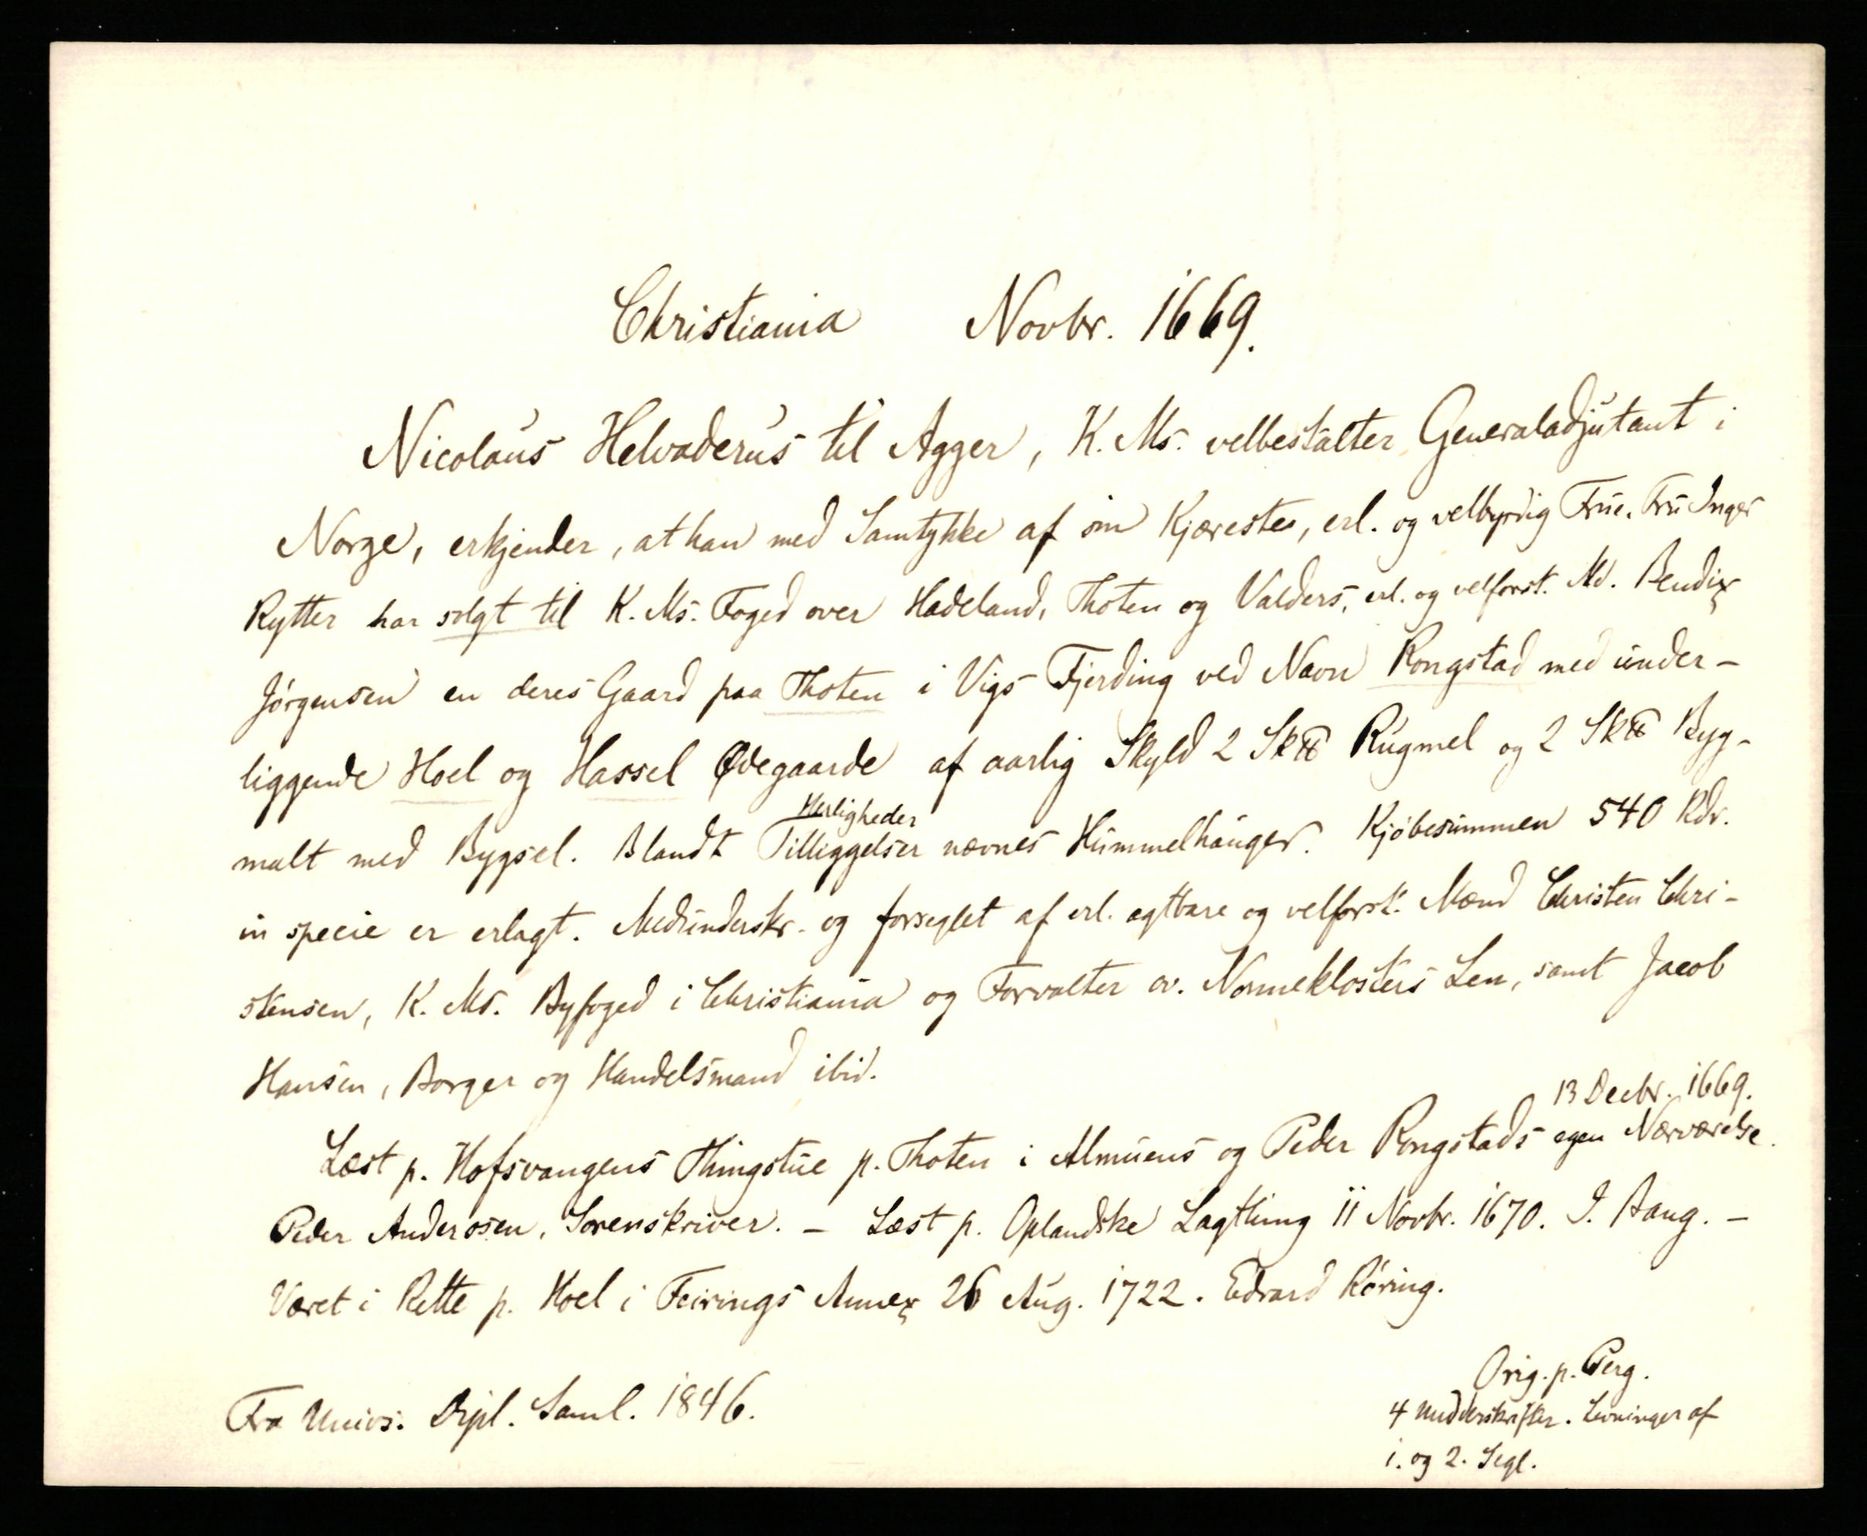 Christiania Novbr. 1669.
Nicolaus Helvaderus til Agger, K. Ms. velbestalter Generaladjutant i
Norge, erkjender, at han med Samtykke af sin Kjæreste, erl. og velbyrdig Frue, Fru Inger
Rytter har solgt til K. Ms. Foged over Hadeland, Thoten og Valders, erl. og velforst. Md. Bendix
Jörgensen en deres Gaard paa Thoten i Vigs Fjerding ved Navn Rongstad med under-
liggende Hoel og Hassel Ødegaarde af aarlig Skyld 2 Sk℔ Rugmel og 2 Sk℔ Byg-
malt med Bygsel. Blandt Tilliggelser Herligheder nævnes Hummelhauger. Kjöbesummen 540 Rdr.
in specie er erlagt. Medunderskr. og forseglet af erl. agtbare og velforst. Mænd Christen Chri-
stensen, K. Ms. Byfoged i Christiania og Forvalter ov. Nonneklosters Len, samt Jacob
Hansen, Borger og Handelsmand ibid.
13 Decbr. 1669.
Læst p. Hofsvangens Thingstue p. Thoten i Almuens og Peder Rongstads egen Nærværelse.
Peder Andersen, Sorenskriver. – Læst p. Oplandske Lagthing 11 Novbr. 1670. I. Bang. –
Været i Rette p. Hoel i Feirings Annex 26 Aug. 1722. Edvard Röring.
Fra Univs. Dipl. Saml. 1846.
Orig. p. Perg.
4 Underskrifter. Levninger af
1. og 2. Segl.